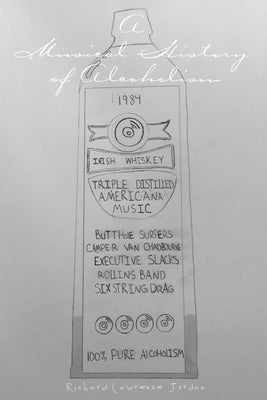 A
Musical History
of Alcoholism
1984
IRISH WHISKEY
TRIPLE DISTILLED
AMERICANA
MUSIC
BUTTHOLE SURFERS
CAMPER VAN CHADBOURNE
EXECUTIVE SLACKS
ROLLINS BAND
SIX STRING DRAG
100% PURE ALCOHOLISM
Richard Lawrence Jordan